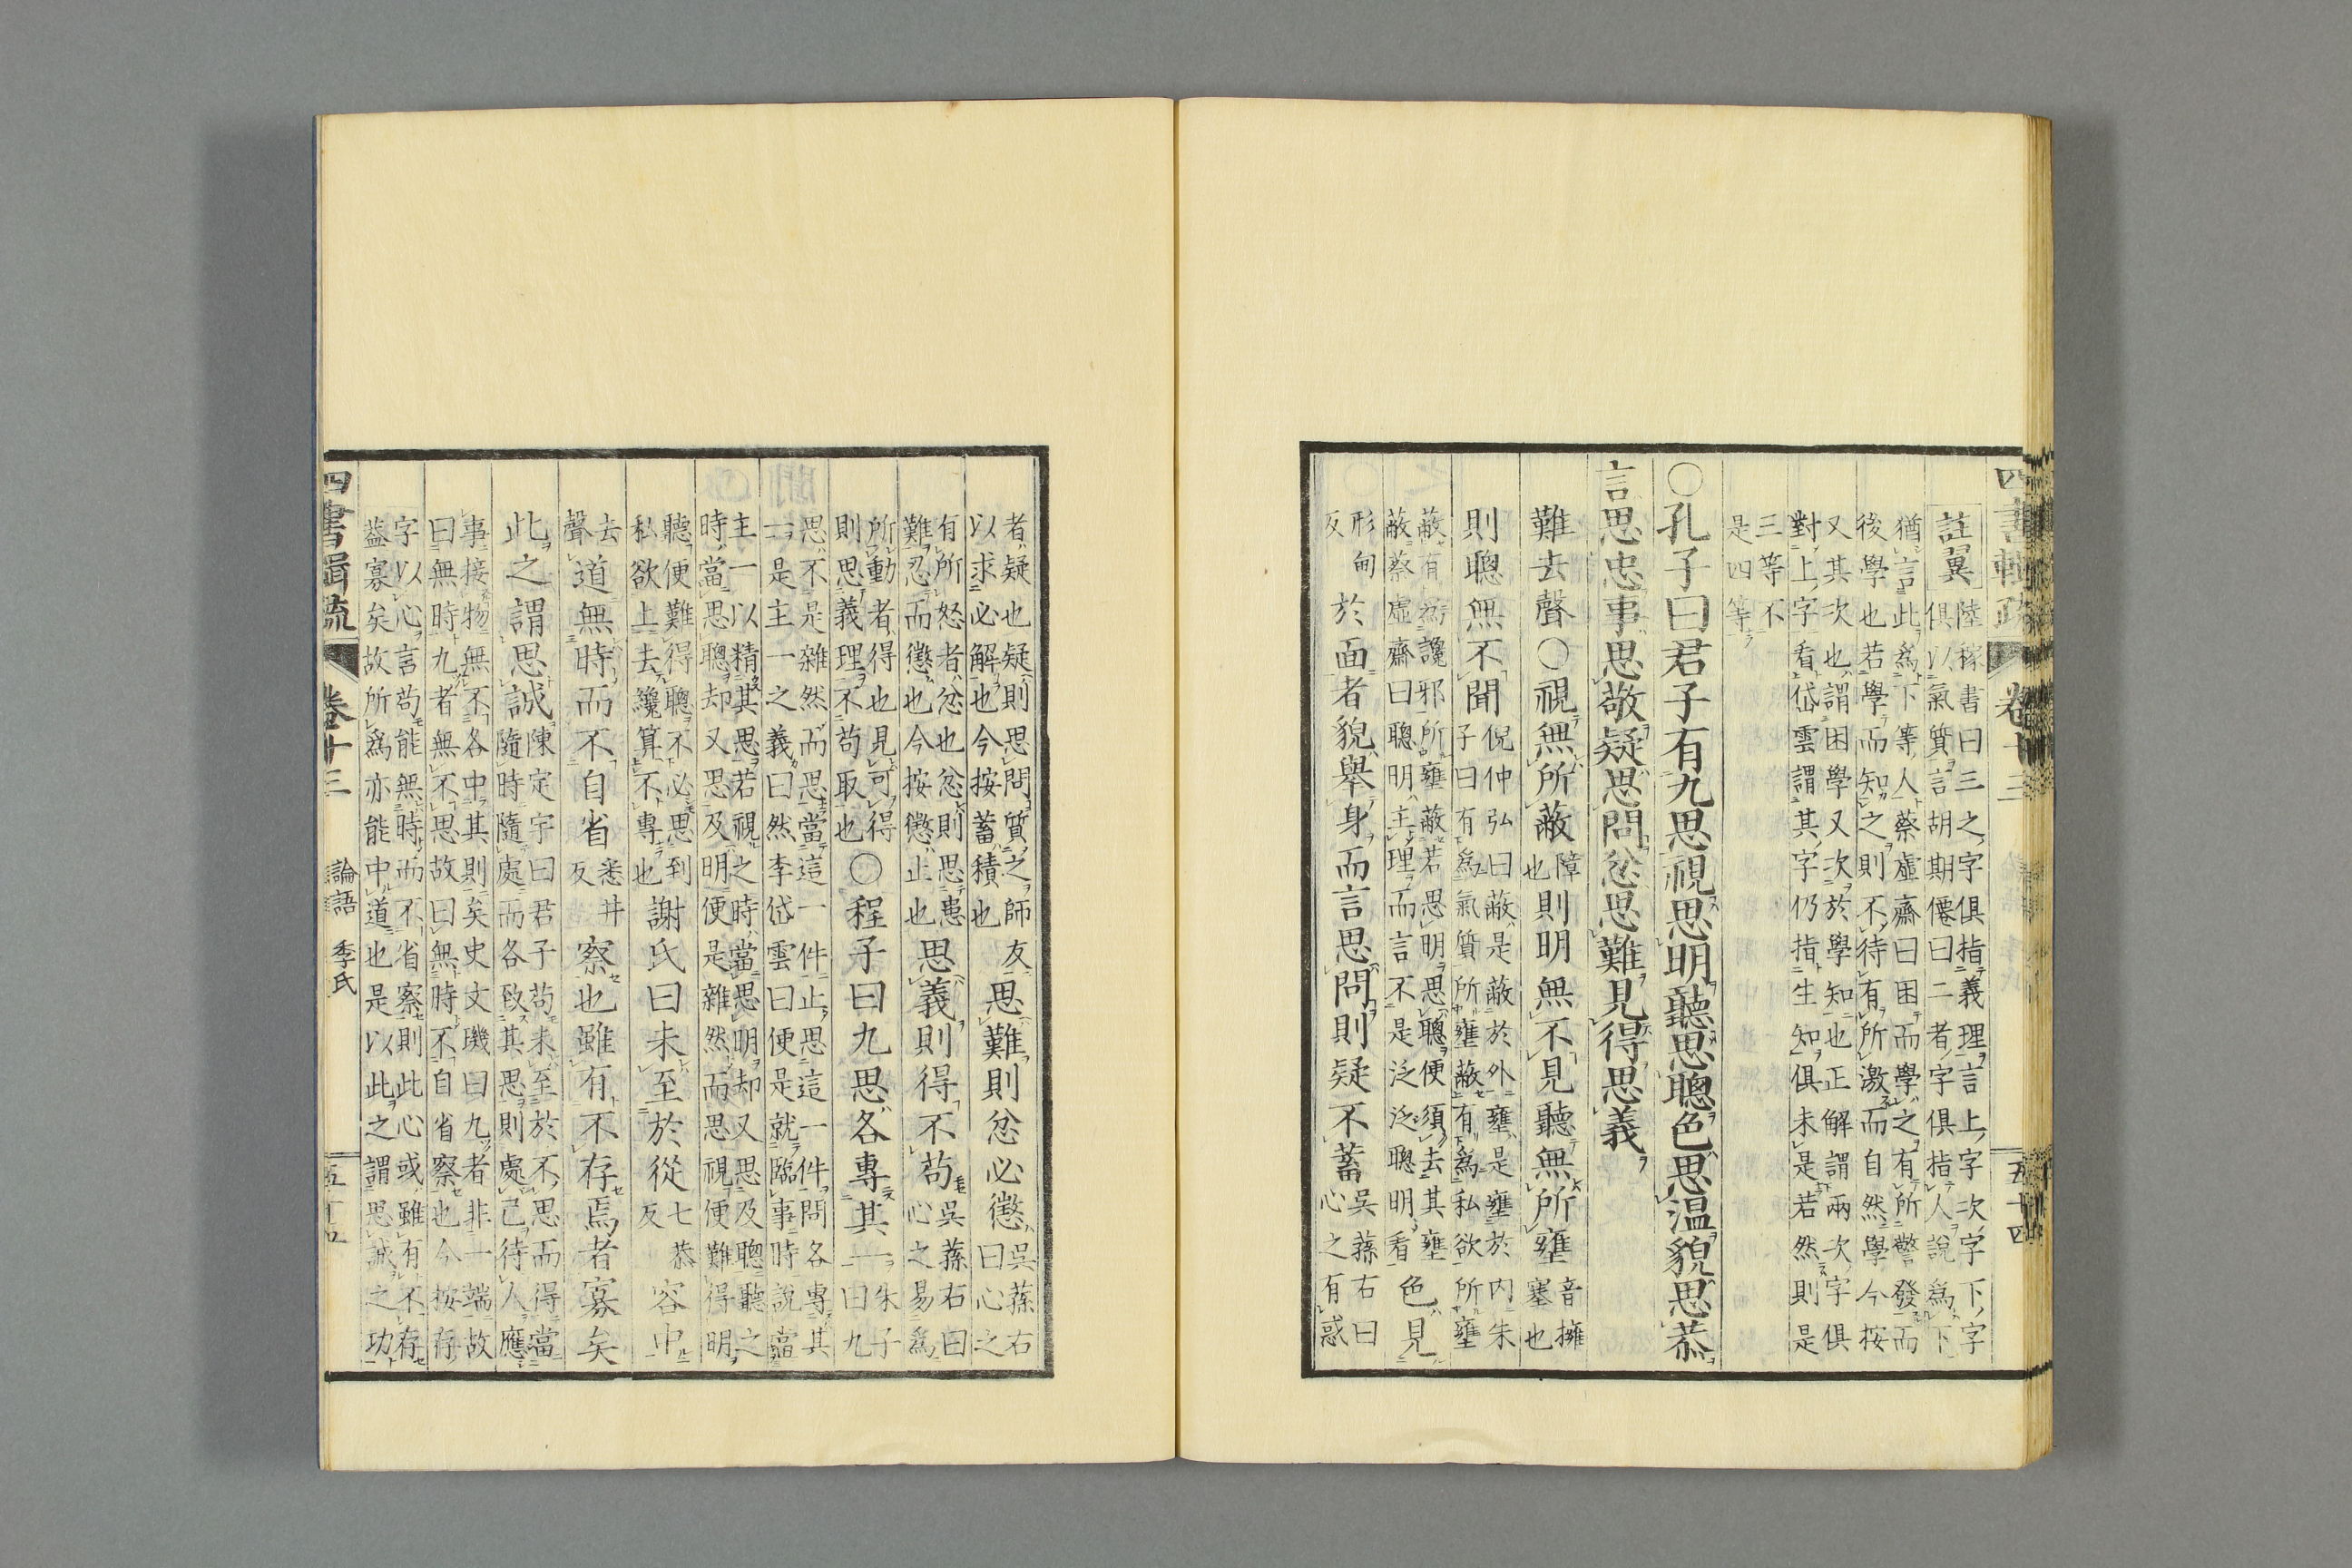 四書輯疏 卷十三 五十四
註翼
陸稼書曰三之字俱指義理言上字次字下字
俱以氣質言胡期僊曰二者字俱指人說爲下
猶言此爲下等人蔡虛齋曰困而學之有所警發而
後學也若學而知之則不待有所激而自然學今按
又其次也謂困學又次於學知也正解謂兩次字俱
對上字看岱雲謂其字仍指生知俱未是若然則是
三等不
是四等
○孔子曰君子有九思視思明聽思聰色思温貌思恭
言思忠事思敬疑思問忿思難見得思義
難去聲○視無所蔽
障
也
則明無不見聽無所壅
音擁
塞也
則聰無不聞
倪仲弘曰蔽是蔽於外壅是壅於内朱
子曰有爲氣質所壅蔽有爲私欲所壅
蔽有爲讒邪所壅蔽若思明思聰便須去其壅
蔽蔡虛齋曰聰明主理而言不是泛泛聰明看
色見
形甸
反
於面者貌舉身而言思問則疑不蓄
吳蓀右曰
心之有惑
者疑也疑則思問質之師友
以求必解也今按蓄積也
思難則忿必懲
吳蓀右
曰心之
有所怒者忿也忿則思患
難忍而懲也今按懲止也
思義則得不苟
吳蓀右曰
心之易爲
所動者得也見可得
則思義理不苟取也
○程子曰九思各專其一
朱子
曰九
思不是雜然而思當這一件止思這一件問各專其
一是主一之義曰然李岱雲曰便是就臨事時說當
主一以精其思若視之時當思明却又思及聰聽之
時當思聰却又思及明便是雜然而思視便難得明
聽便難得聰不必思到
私欲上去纔算不專也
謝氏曰未至於從
七恭
反
容中
去
聲
道無時而不自省
悉井
反
察也雖有不存焉者寡矣
此之謂思誠
陳定宇曰君子苟未至於不思而得當
隨時隨處而各致其思則處己待人應
事接物無不各中其則矣史文璣曰九者非一端故
曰無時九者無不思故曰無時不自省察也今按存
字以心言苟能無時而不省察則此心或雖有不存
蓋寡矣故所爲亦能中道也是以此之謂思誠之功
四書輯疏 卷十三 論語 季氏